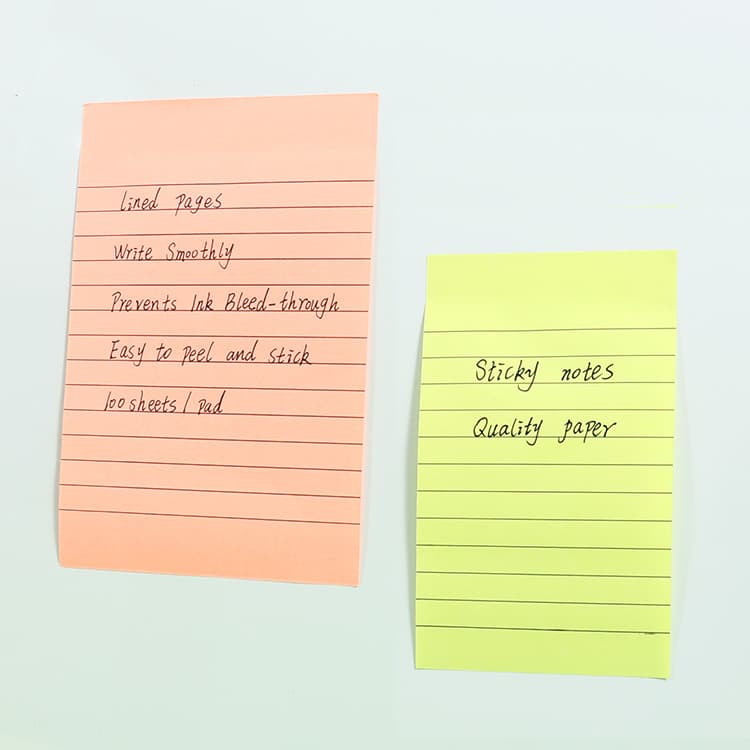 lined pages
Write Smoothly
Prevents Ink Bleed-through
Easy to peel and stick
100 sheets / pad
Sticky notes
Quality paper